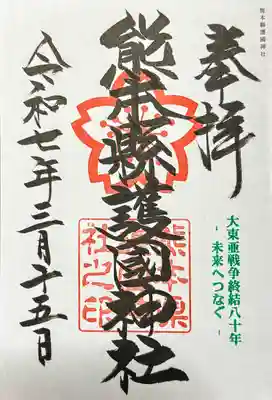 熊本縣護國神社
奉拝
大東亜戦争終結八十年
- 未来へつなぐ -
熊本縣護國神社
熊本県
護国神
社之印
令和七年三月十五日